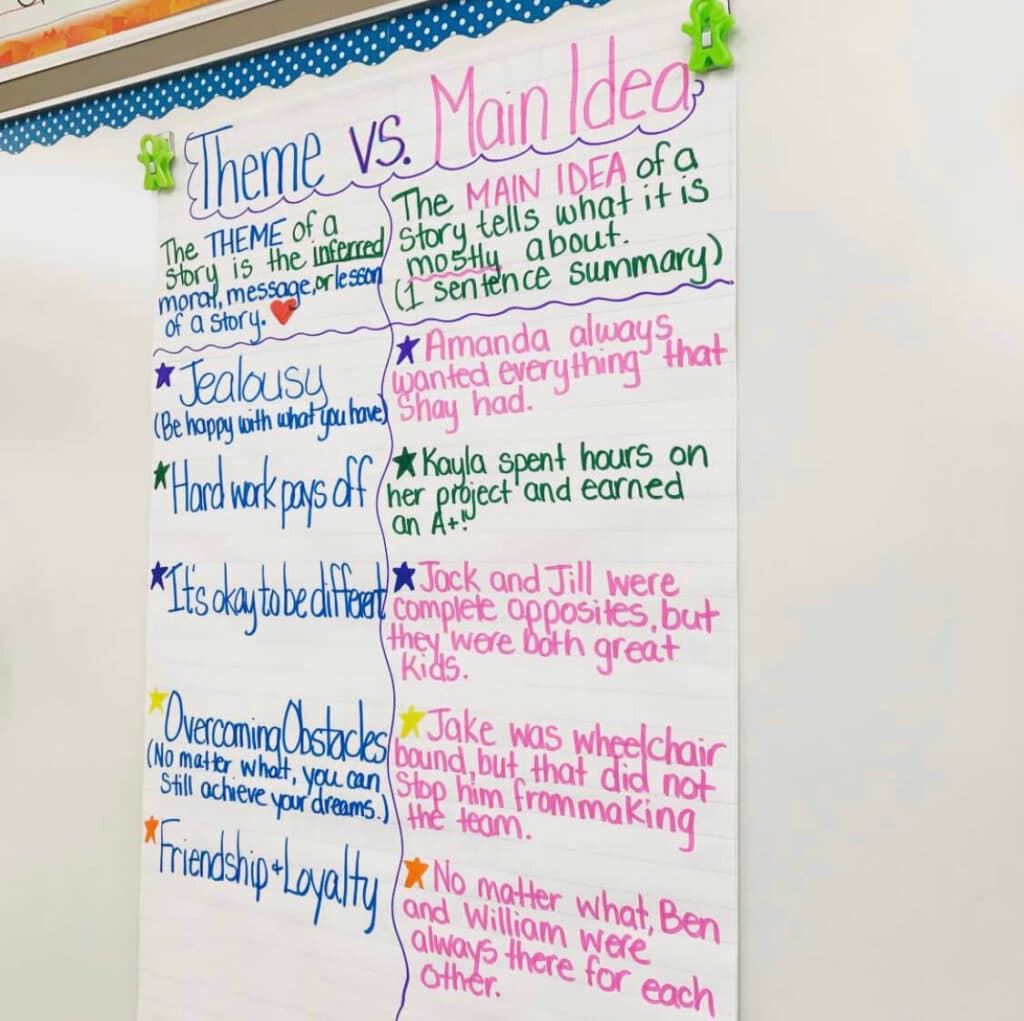 Theme vs. Main Idea
The THEME of a
story is the inferred
moral, message, or lesson
of a story.
The MAIN IDEA of a
story tells what it is
mostly about.
(1 sentence summary)
Jealousy
(Be happy with what you have)
Amanda always
wanted everything that
Shay had.
Hard work pays off
Kayla spent hours on
her project and earned
an A+!
It's okay to be different
Jack and Jill were
complete opposites, but
they were both great
kids.
Overcoming Obstacles
(No matter what, you can
still achieve your dreams.)
Jake was wheelchair
bound, but that did not
stop him from making
the team.
Friendship + Loyalty
No matter what, Ben
and William were
always there for each
other.